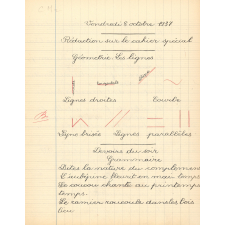 Vendredi 8 octobre 1938
Rédaction sur le cahier spécial
Géométrie: Les lignes
Lignes droites Courbe
Ligne brisée Lignes parallèles
Devoirs du soir
Grammaire
Dites la nature du complément
L'aubépine fleurit en mai
Le coucou chante au printemps
temps.
Le ramier roucoule dans les bois